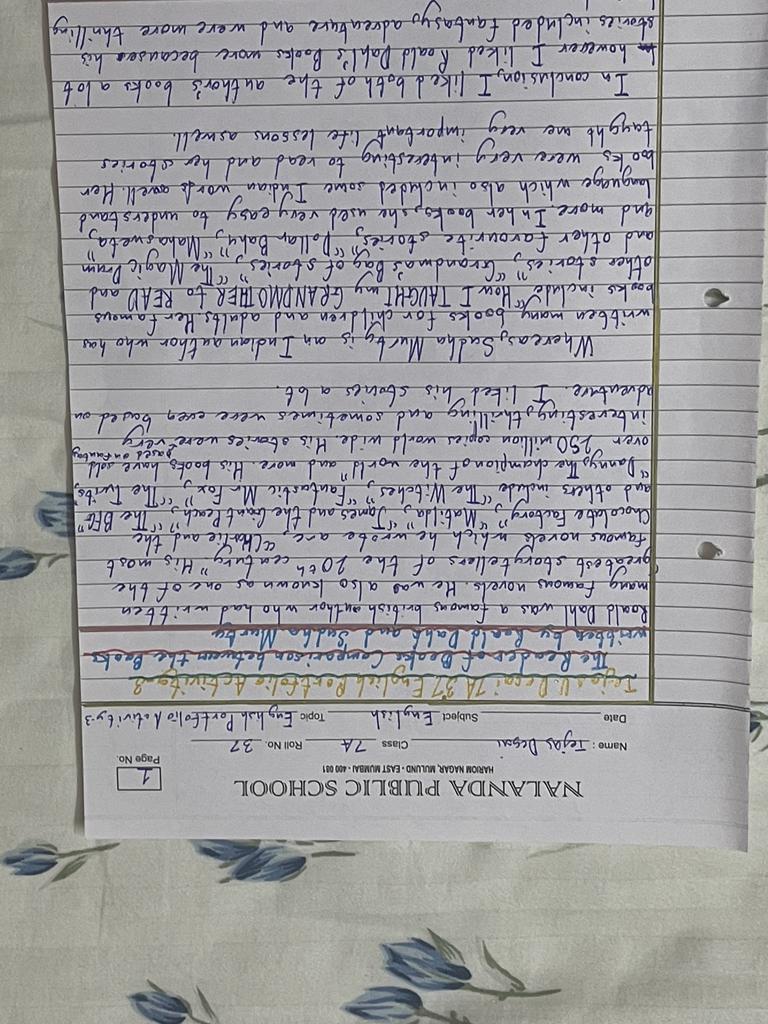 NALANDA PUBLIC SCHOOL
HARIOM NAGAR, MULUND - EAST MUMBAI - 400 081
1
Page No.
Name : Tejas Desai Class 7A Roll No. 37
Date Subject English Topic English Portfolio Activity-3
Tejas V. Desai 7A 37 English Portfolio Activity-3
The Reader of Books Comparison between the Books
written by Roald Dahl and Sudha Murty
Roald Dahl was a famous british author who had written
many famous novels. He was also known as one of the
"greatest storytellers of the 20th century" His most
famous novels which he wrote are, "Charlie and the
Chocolate Factory", "Matilda", "James and the Giant Peach", "The BFG"
and others include "The Witches", "Fantastic Mr Fox", "The Twits",
"Danny, The champion of the world" and more. His books have sold
over 250 million copies world wide. His stories were based on fantasy very
interesting, thrilling and sometimes were even based on
adventure. I liked his stories a lot.
Whereas, Sudha Murty is an Indian author who has
written many books for children and adults. Her famous
books include "How I TAUGHT my GRANDMOTHER to READ and
other stories", "Grandma's Bag of stories", "The Magic Drum
and other favourite stories", "Dollar Bahu", "Mahasweta",
and more. In her books, she used very easy to understand
language which also included some Indian words aswell. Her
books were very interesting to read and her stories
taught me very important life lessons aswell.
In conclusion, I liked both of the author's books a lot
however I liked Roald Dahl's Books more because his
stories included fantasy, adventure and were more thrilling